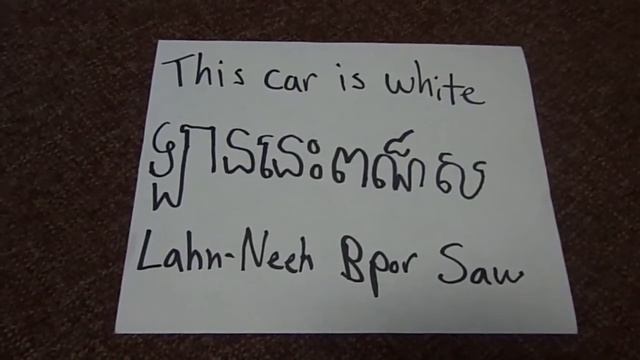 This car is white
ឡាននេះពណ៌ស
Lahn-Neeh Bpor Saw